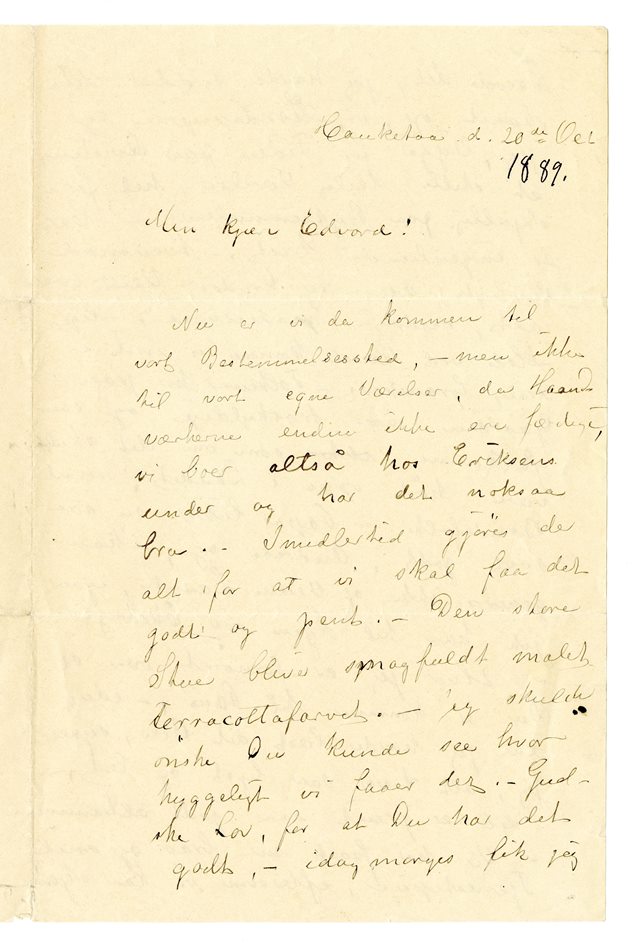 Hauketoa d. 20de Oct
1889.
Min kjære Edvard!
Nu er vi da kommen til
vort Bestemmelsessted, – men ikke
til vort egne Værelser, da Haand-
værkerne endnu ikke ere færdige,
vi boer altså hos Eriksens
under og har det noksaa
bra. – Imidlertid gjöres der
alt for at vi skal faa det
godt og pent. – Den store
Stue blive smagfuldt malet
terracottafarvet. – jeg skulde
önske Du kunde see hvor
hyggeligt vi faaer det. – Gud-
ske Lov, for at Du har det
godt, – idag morges fik jeg